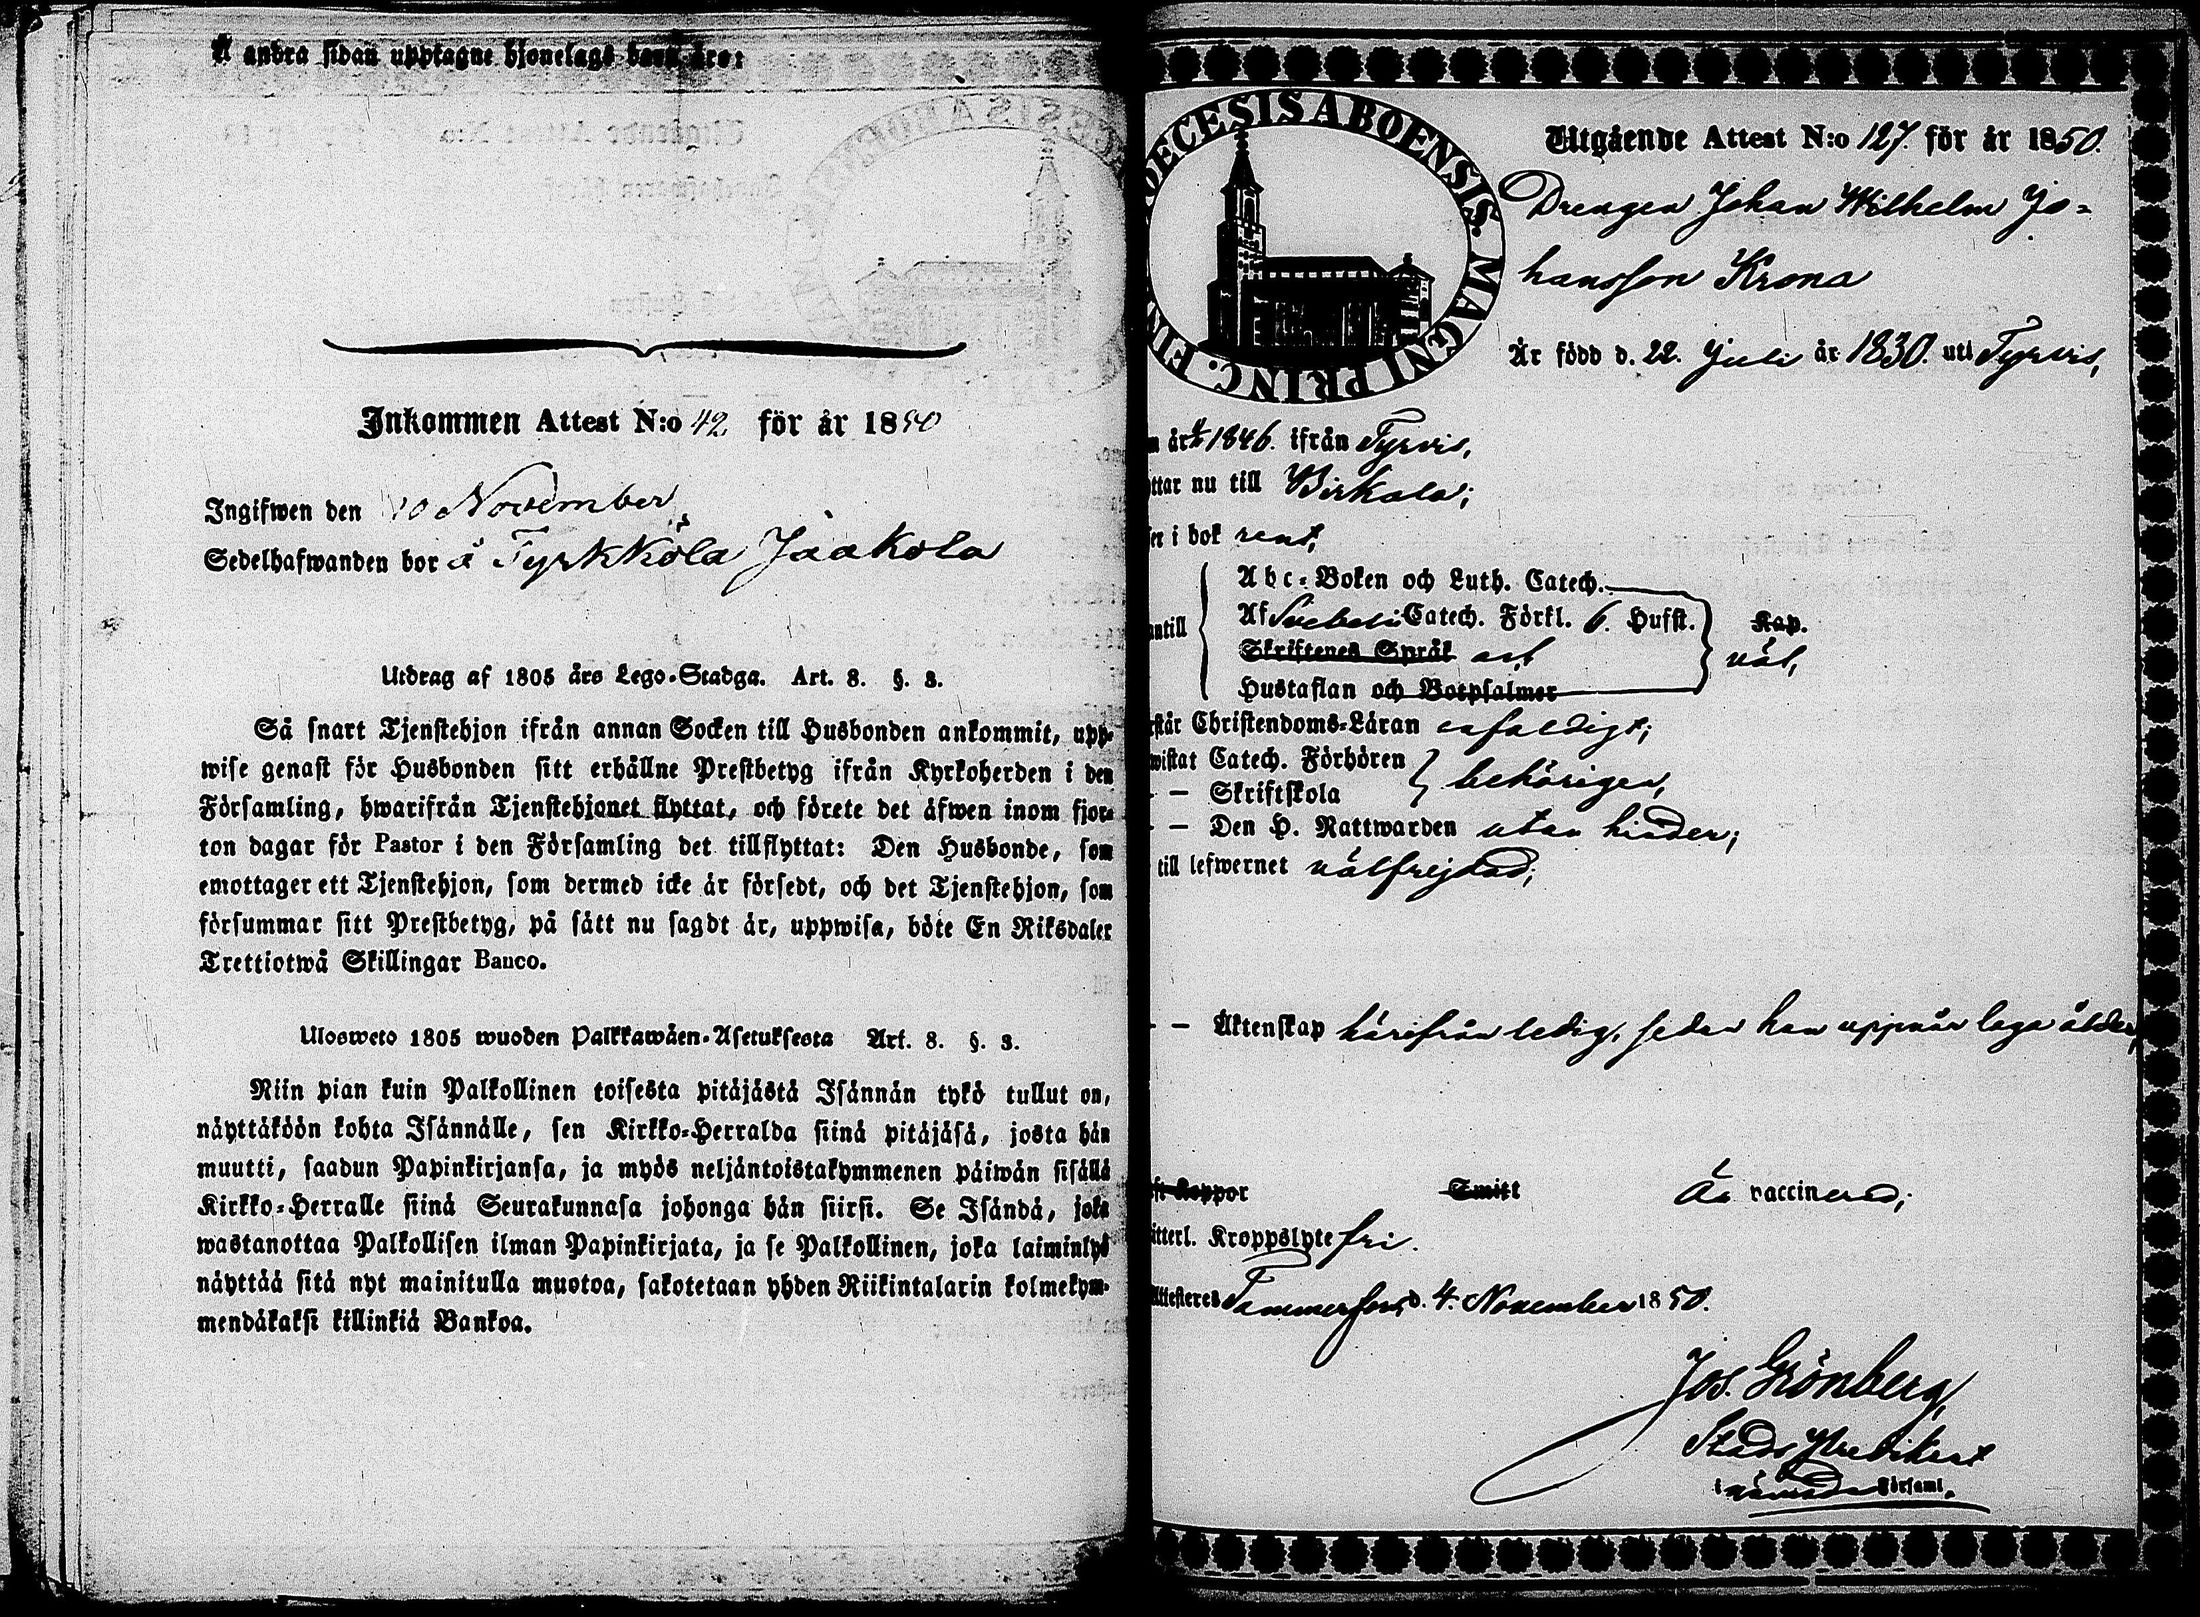 Å andra sidan upptagne hjonelags barn äro:
Inkommen Attest N:o 42 för år 1850
Ingifwen den 10 November
Sedelhafwanden bor å Tyrkkölä Jaakola
Utdrag af 1805 års Lego-Stadga. Art. 8. §. 3.
Så snart Tjenstehjon ifrån annan Socken till Husbonden ankommit, upp-
wise genast för Husbonden sitt erhållne Prestbetyg ifrån Kyrkoherden i den
Församling, hwarifrån Tjenstehjonet flyttat, och förete det äfwen inom fjor-
ton dagar för Pastor i den Församling det tillflyttat: Den Husbonde, som
emottager ett Tjenstehjon, som dermed icke är försedt, och det Tjenstehjon, som
försummar sitt Prestbetyg, på sätt nu sagdt är, uppwisa, böte En Riksdaler
Trettiotwå Skillingar Banco.
Ulosweto 1805 wuoden Palkkawäen-Asetuksesta Art. 8. §. 3.
Niin pian kuin Palkollinen toisesta pitäjästä Isännän tykö tullut on,
näyttäköön kohta Isännälle, sen Kirkko-Herralda siinä pitäjäsä, josta hän
muutti, saadun Papinkirjansa, ja myös neljäntoistakymmenen päiwän sisällä
Kirkko-Herralle siinä Seurakunnasa johonga hän siirsi. Se Isändä, joka
wastanottaa Palkollisen ilman Papinkirjata, ja se Palkollinen, joka laiminlyö
näyttää sitä nyt mainitulla muotoa, sakotetaan yhden Riikintalarin kolmekym-
mendäkaksi killinkiä Bankoa.
DIOECESIS ABOENSIS. MAGNI PRINC. FIN
Utgående Attest N:o 127. för år 1850.
Drengen Johan Wilhelm Jo=
hansson Krona
År född d. 22. Juli år 1830. uti Tyrvis,
n år 1846. ifrån Tyrvis,
ttar nu till Birkala;
ser i bok rent,
Abc-Boken och Luth. Catech.
antill Af Svebelii Catech. Förkl. 6. Hufst. Kap.
Skriftenes Språk ock väl,
Hustaflan och Botpsalmer
rstår Christendoms-Läran enfaldigt;
wistat Catech. Förhören
behörigen,
– – Skriftskola
– – Den H. Nattwarden utan hinder;
till lefwernet välfrejdad;
– – Äktenskap härifrån ledig, sedan han uppnår laga ålder,
ft Koppor Smitt Är vaccinerad;
itterl. Kroppslyte fri.
Attesteres Tammerfors d. 4. November 1850.
Jos. Grönberg,
Stads Predikant
i nämnda Församl.